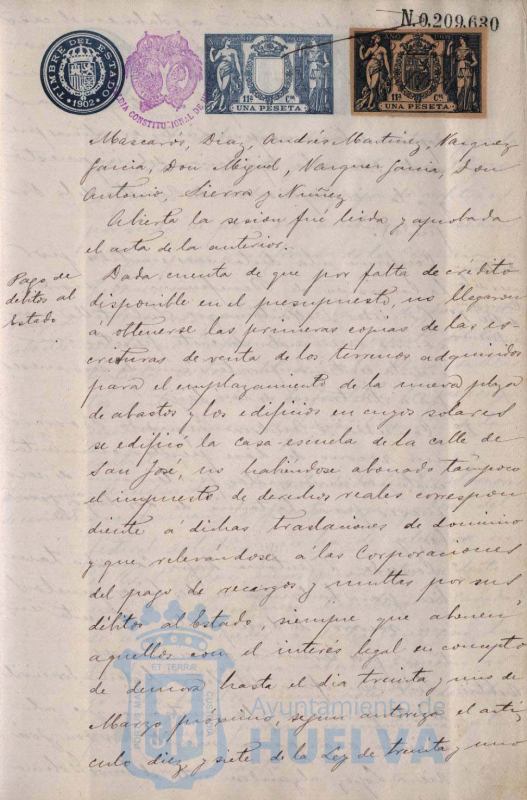 N.0.209.630
TIMBRE DEL ESTADO
1902
ALDIA CONSTITUCIONAL DE
11ª Cse
UNA PESETA
AÑO 1902
11ª Cse
UNA PESETA
Mascarós, Diaz, Andrés Martinez, Vazquez
Garcia, Don Miguel, Vazquez Garcia, Don
Antonio, Sierra y Nuñez
Abierta la sesion fué leida y aprobada
el acta de la anterior.
Pago de
debitos al
Estado
Dada cuenta de que por falta de crédito
disponible en el presupuesto, no llegaron
á obtenerse las primeras copias de las es-
crituras de venta de los terrenos adquiridos
para el emplazamiento de la nueva plaza
de abastos y los edificios en cuyos solares
se edificó la casa-escuela de la calle de
San José, no habiendose abonado tampoco
el impuesto de derechos reales correspon
diente á dichas traslaciones de dominio
y que relevándose á las Corporaciones
del pago de recargos y multas por sus
débitos al Estado, siempre que abonen
aquellos con el interés legal en concepto
de demora hasta el dia treinta y uno de
Marzo próximo, segun autoriza el arti
culo diez y siete de la Ley de treinta y uno
Ayuntamiento de
HUELVA